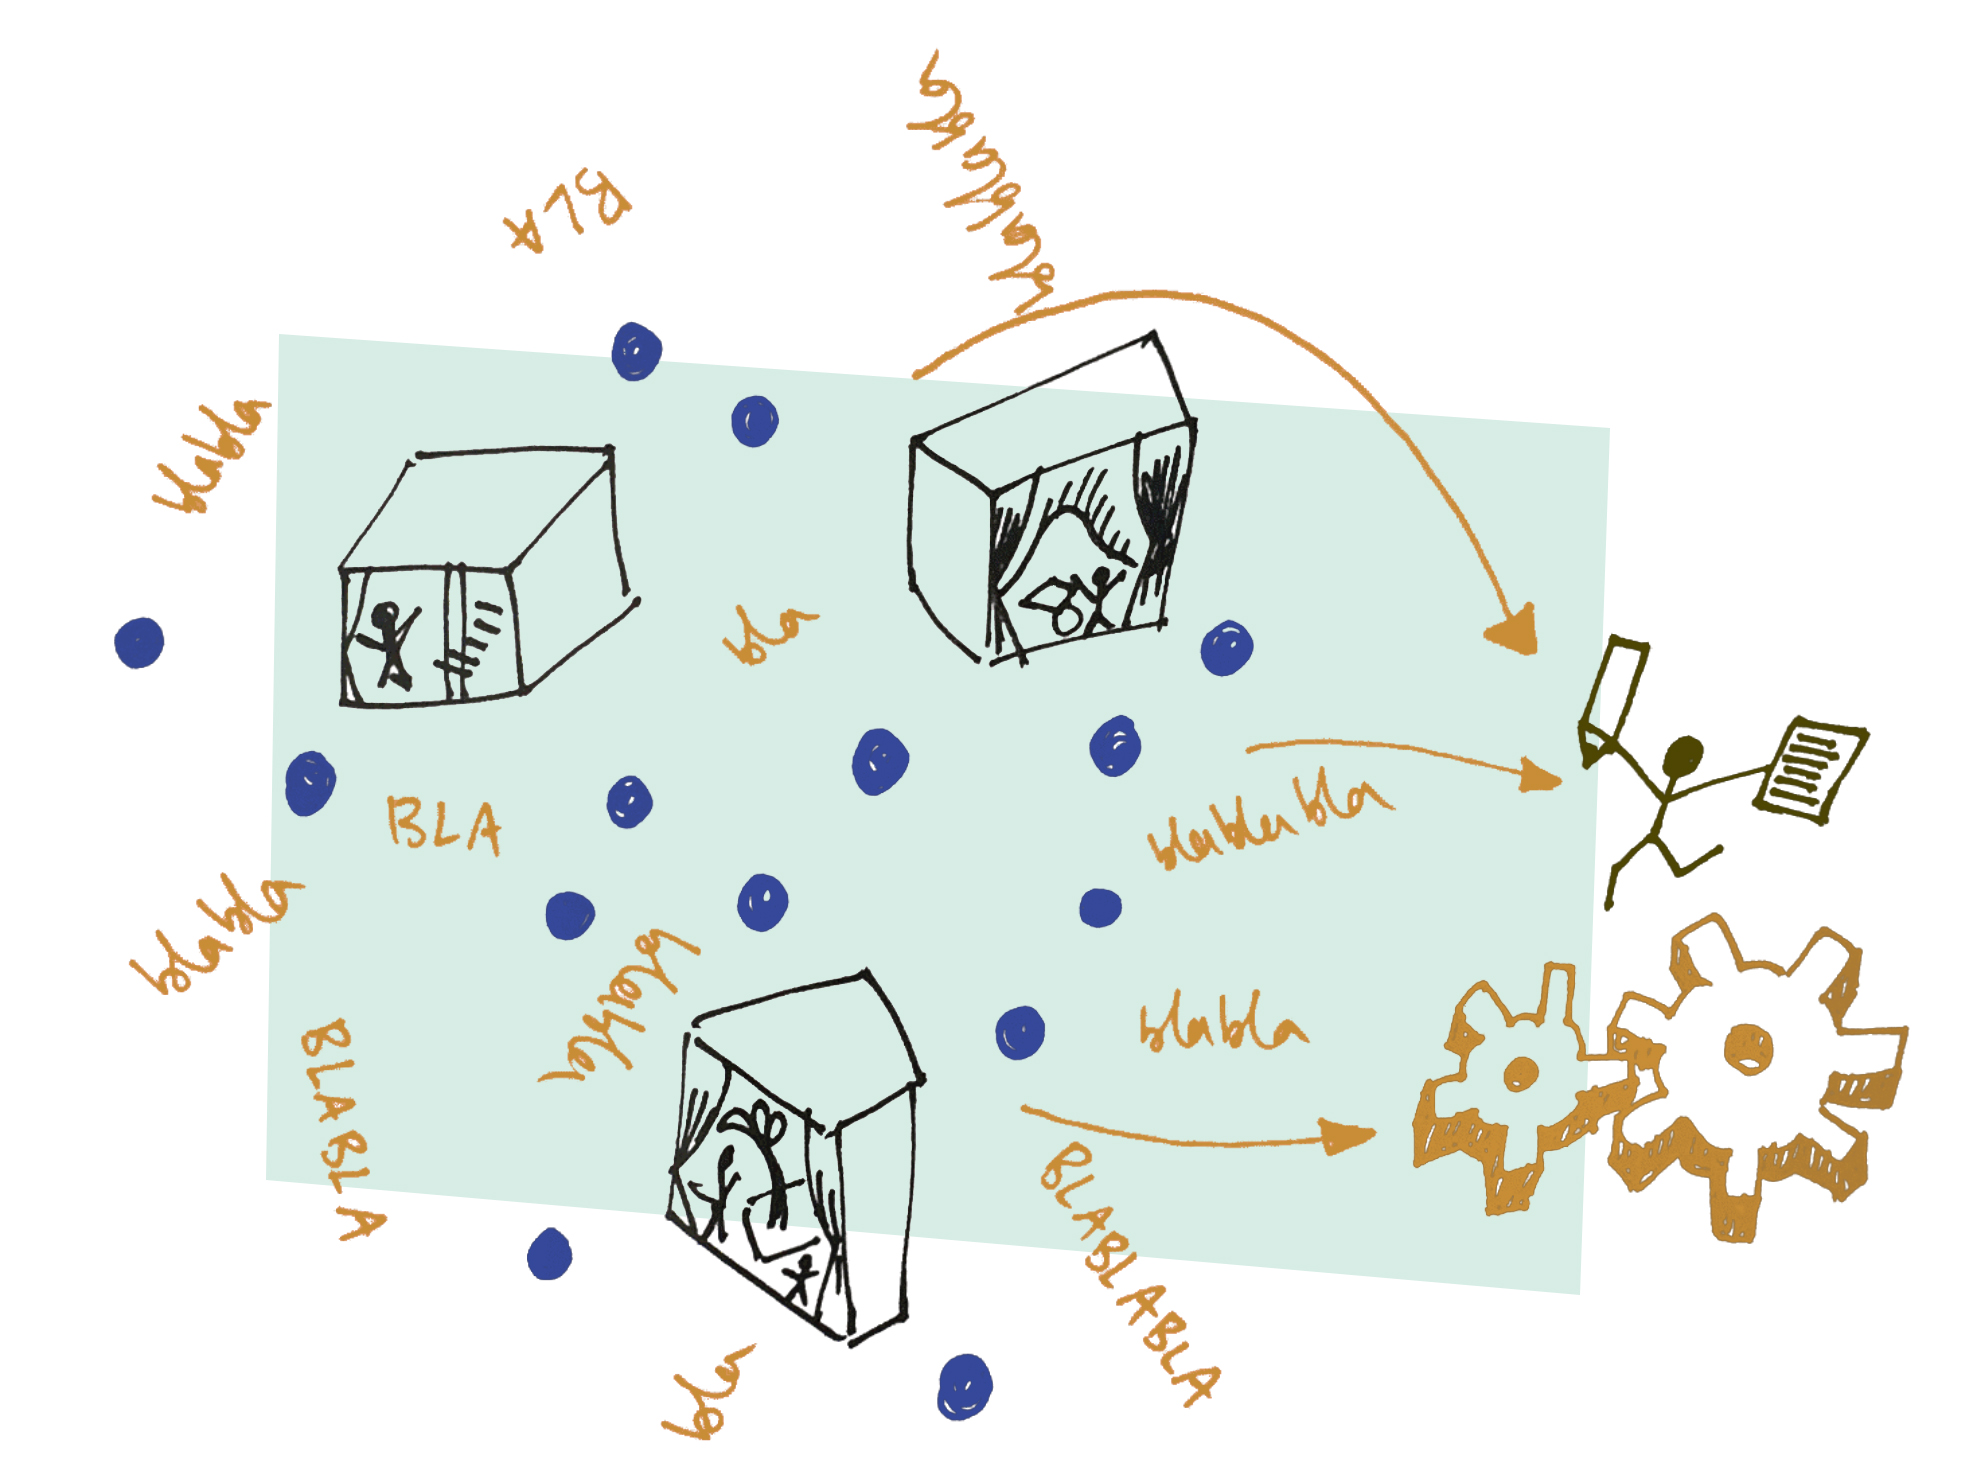 blablablabla
BLA
blabla
bla
blablabla
BLA
blabla
blabla
blabla
BLABLA
BLABLABLA
bla